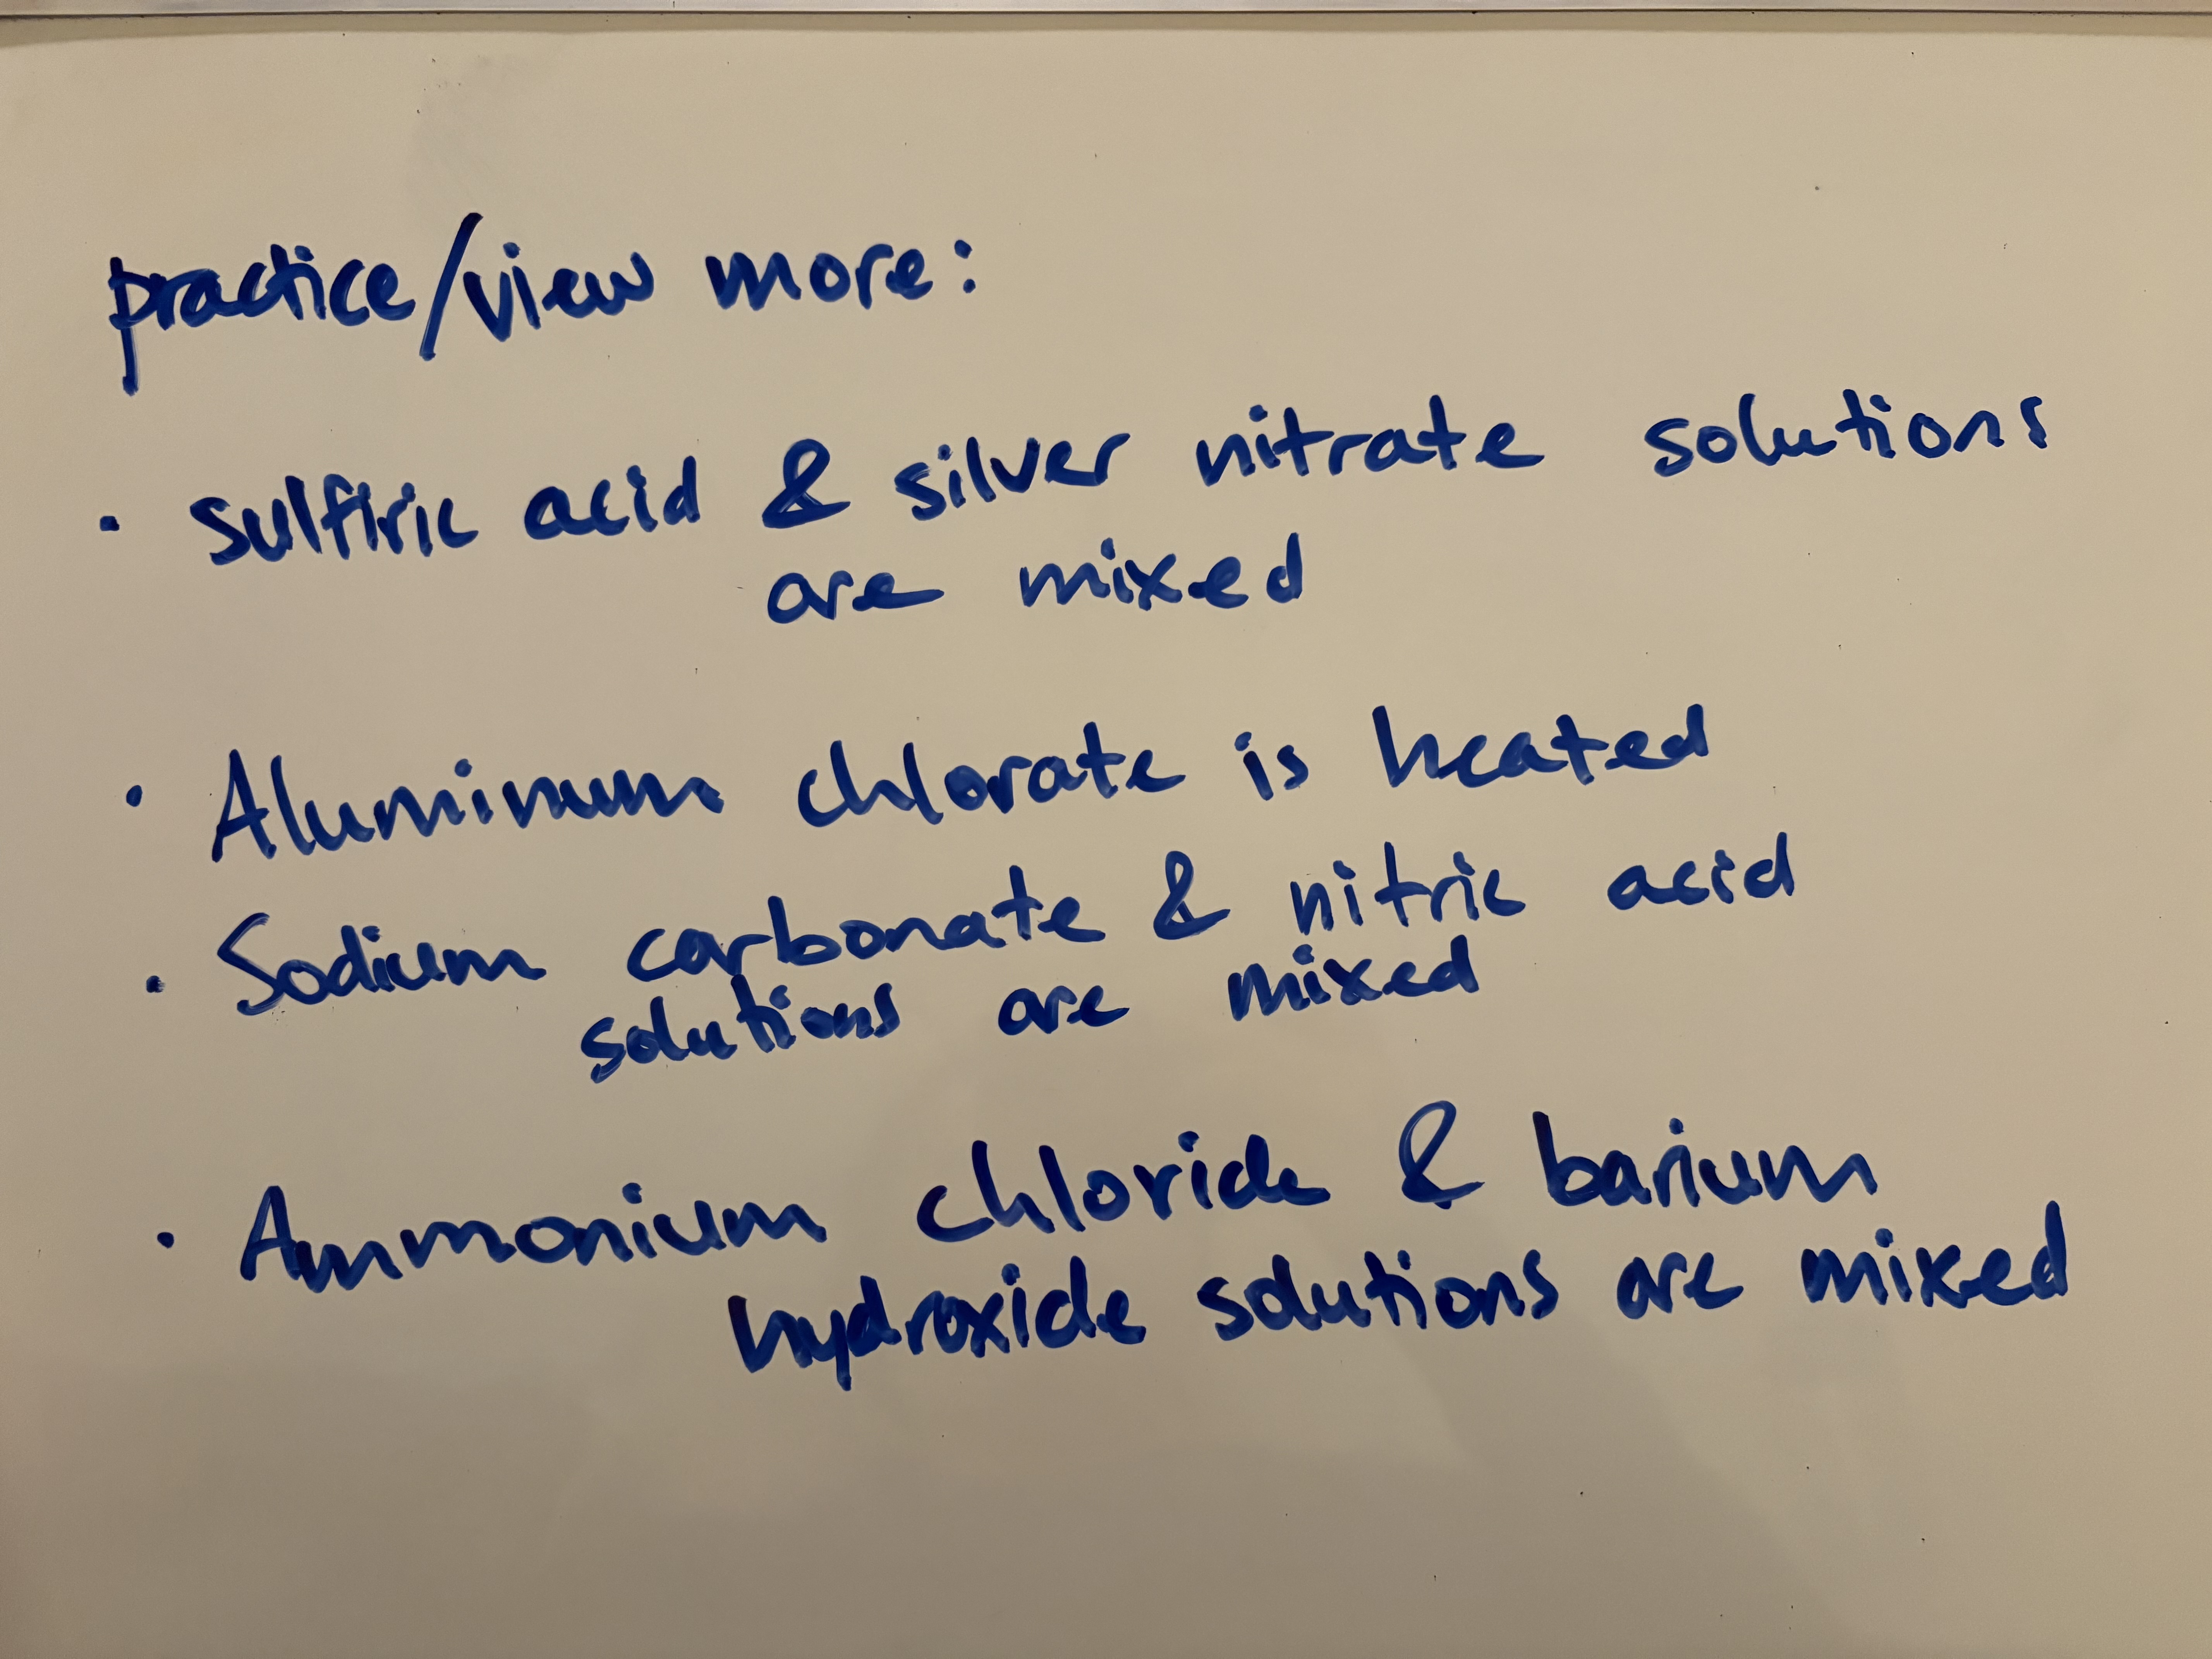 practice/view more:
• sulfuric acid & silver nitrate solutions
are mixed
• Aluminum chlorate is heated
• Sodium carbonate & nitric acid
solutions are mixed
• Ammonium chloride & barium
hydroxide solutions are mixed